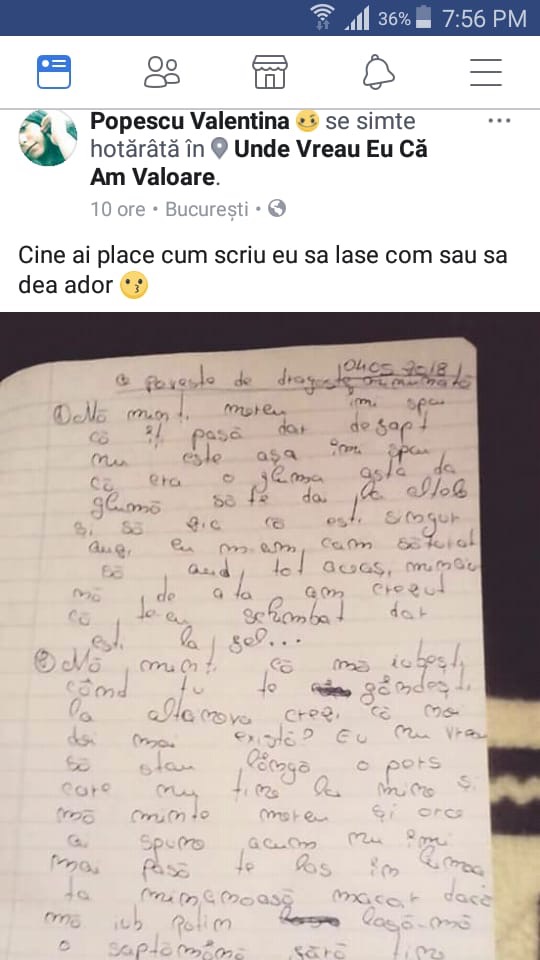 36% 7:56 PM
Popescu Valentina se simte
hotărâtă în Unde Vreau Eu Că
Am Valoare.
10 ore • București •
Cine ai place cum scriu eu sa lase com sau sa
dea ador
04.05.2018
O poveste de dragoste
① Mă minț. mereu îmi spui
că îți pasă dar de sapt
nu este așa îmi spui
că era o gluma asta da
glumă să te dai la altele
și să zic că ești singur
auzi eu m-am cam săturat
să aud tot aceaș, minciu
nă de a ta am crezut
că te-ai schimbat dar
ești la fel...
② Mă minț. că mă iubești
când tu te gândești
la altcineva crezi că noi
doi mai există? Eu nu vreau
să stau lângă o pers
care nu ține la mine și
mă minte mereu și orce
ai spune acum nu îmi
mai pasă te las în lumea
ta mincinoasă macar dacă
mă iub puțin lasă-mă
o saptămână fără tine